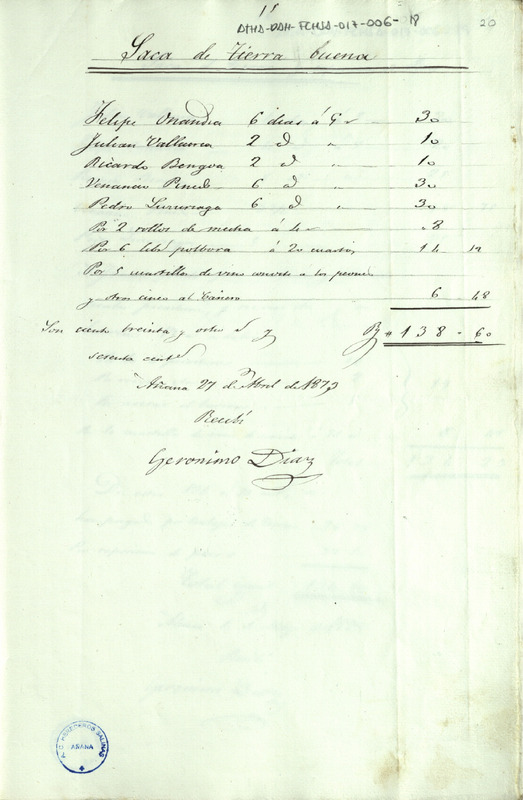 11
ATHA-DAH-FCHSA-017-006-18
20
Saca de Tierra buena
Felipe Onandia 6 dias á 5 r 30
Julian Valluerca 2 d " 10
Ricardo Bengoa 2 d " 10
Venancio Pinedo 6 d " 30
Pedro Luzuriaga 6 d " 30
Por 2 rollos de mecha á 4 r " 8
Por 6 lib polbora á 20 cuartos 14 12
Por 5 cuartillos de vino a los peones
y otros cinco al Cánero 6 48
Son ciento treinta y ocho r y R " 138 - 60
sesenta cents
Añana 27 de Abril de 1873
Recibí
Geronimo Diaz
HEREDEROS SALINAS
AÑANA